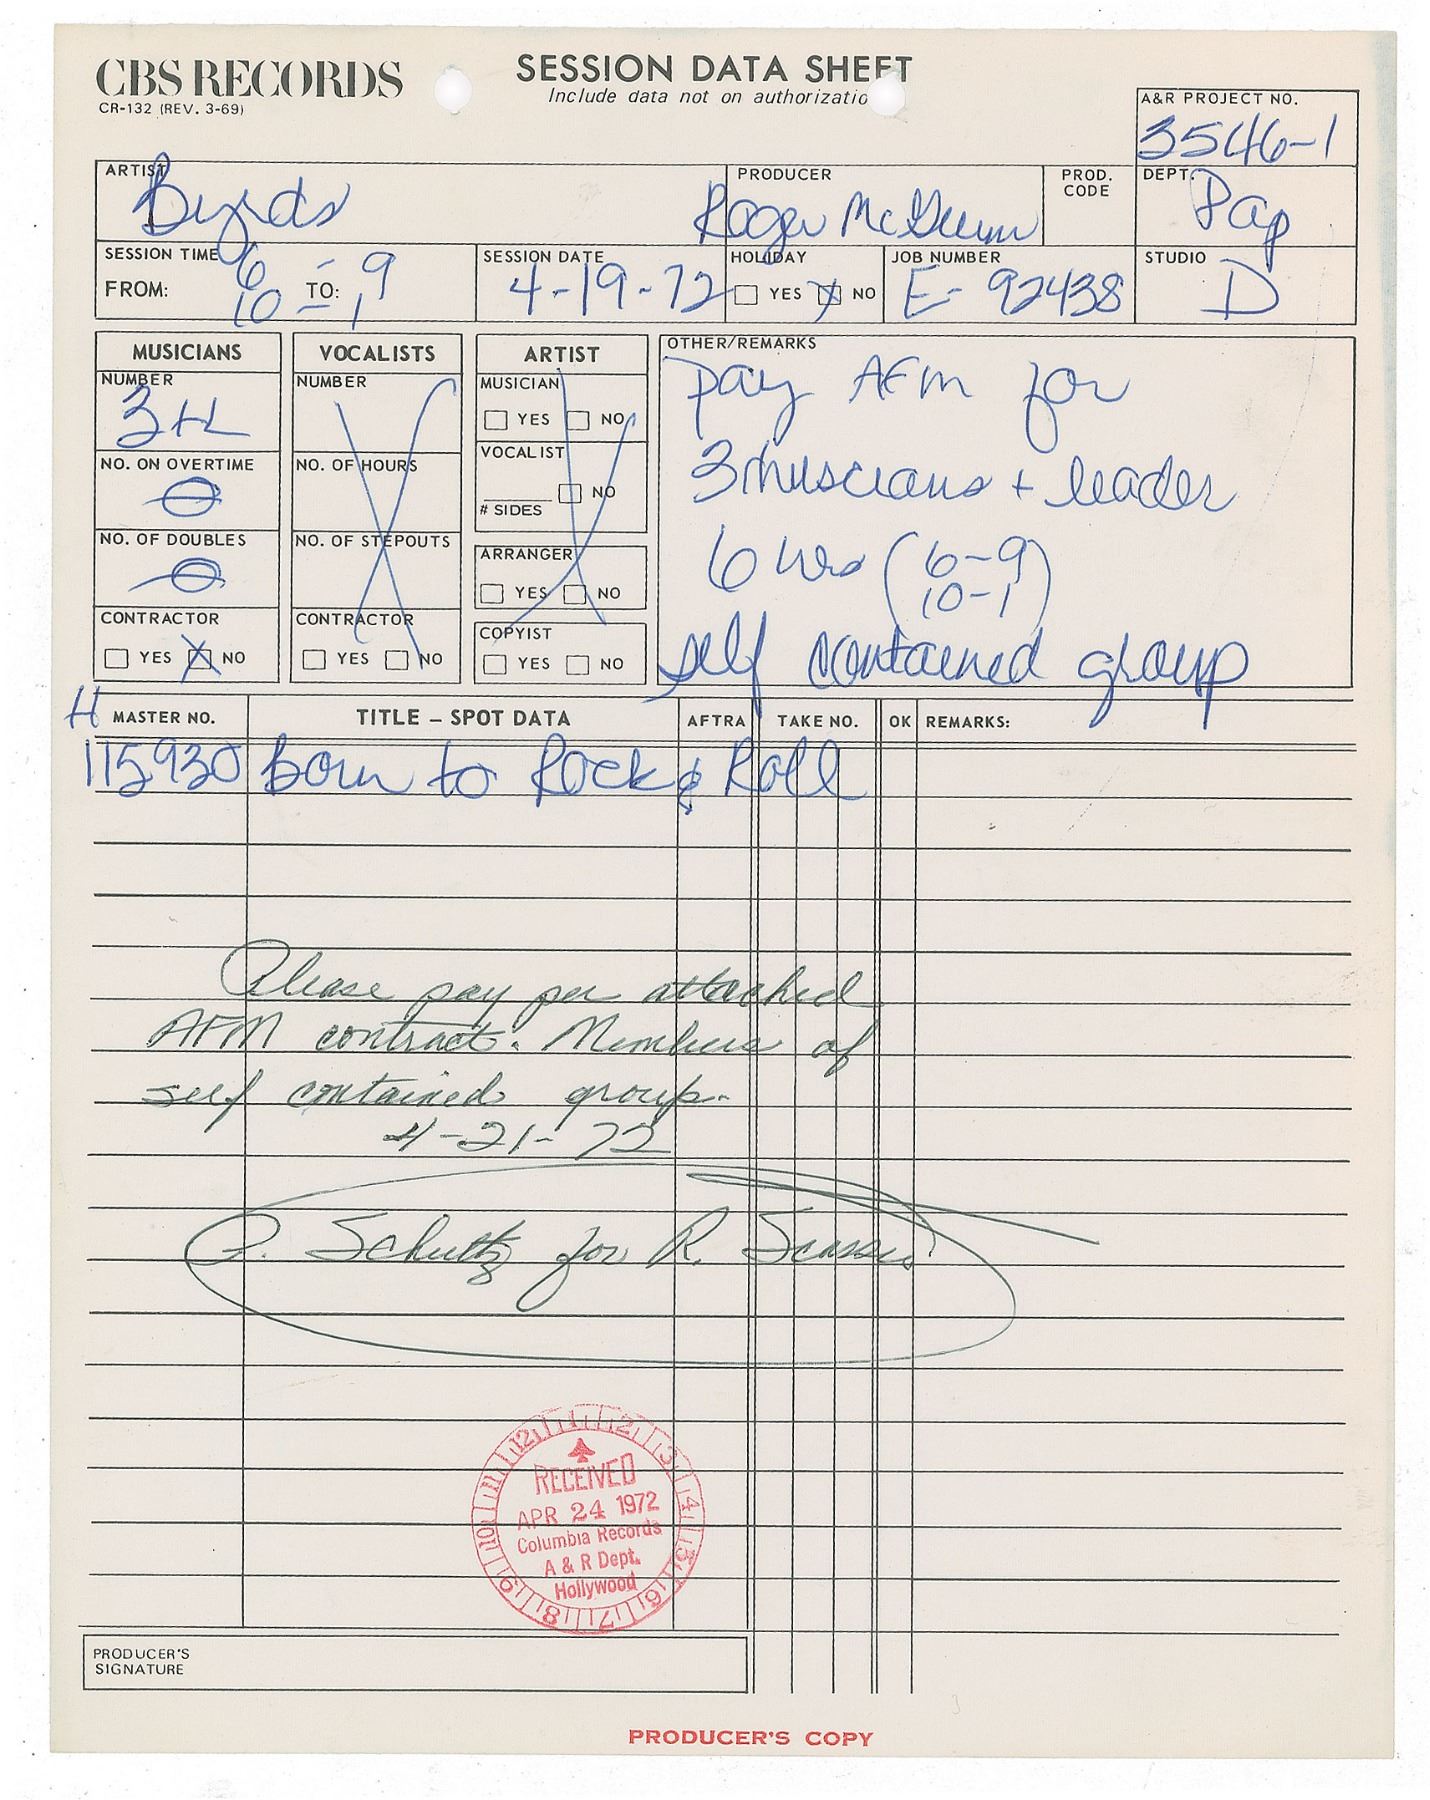 CBS RECORDS
CR-132 (REV. 3-69)
SESSION DATA SHEET
Include data not on authorizatio
A&R PROJECT NO.
3546-1
ARTIST
Byrds
PRODUCER
Roger McGuinn
PROD. CODE
DEPT.
Pop
SESSION TIME
FROM: 6 - TO: 9
10 - 1
SESSION DATE
4-19-72
HOLIDAY
YES NO
JOB NUMBER
E-92438
STUDIO
D
MUSICIANS
NUMBER
3+L
NO. ON OVERTIME
NO. OF DOUBLES
CONTRACTOR
YES NO
VOCALISTS
NUMBER
NO. OF HOURS
NO. OF STEPOUTS
CONTRACTOR
YES NO
ARTIST
MUSICIAN
YES NO
VOCALIST
NO
# SIDES
ARRANGER
YES NO
COPYIST
YES NO
OTHER/REMARKS
pay AFM for
3 muscians + leader
6 hrs (6-9
10-1)
self contained group
H
MASTER NO. TITLE – SPOT DATA AFTRA TAKE NO. OK REMARKS:
115930 Born to Rock & Roll
Please pay per attached
AFM contract. Members of
self contained group.
4-21-72
Schultz for R.
12 1 2 3 4 5 6 7 8 9 10 11
RECEIVED
APR 24 1972
Columbia Records
A & R Dept.
Hollywood
PRODUCER'S
SIGNATURE
PRODUCER'S COPY